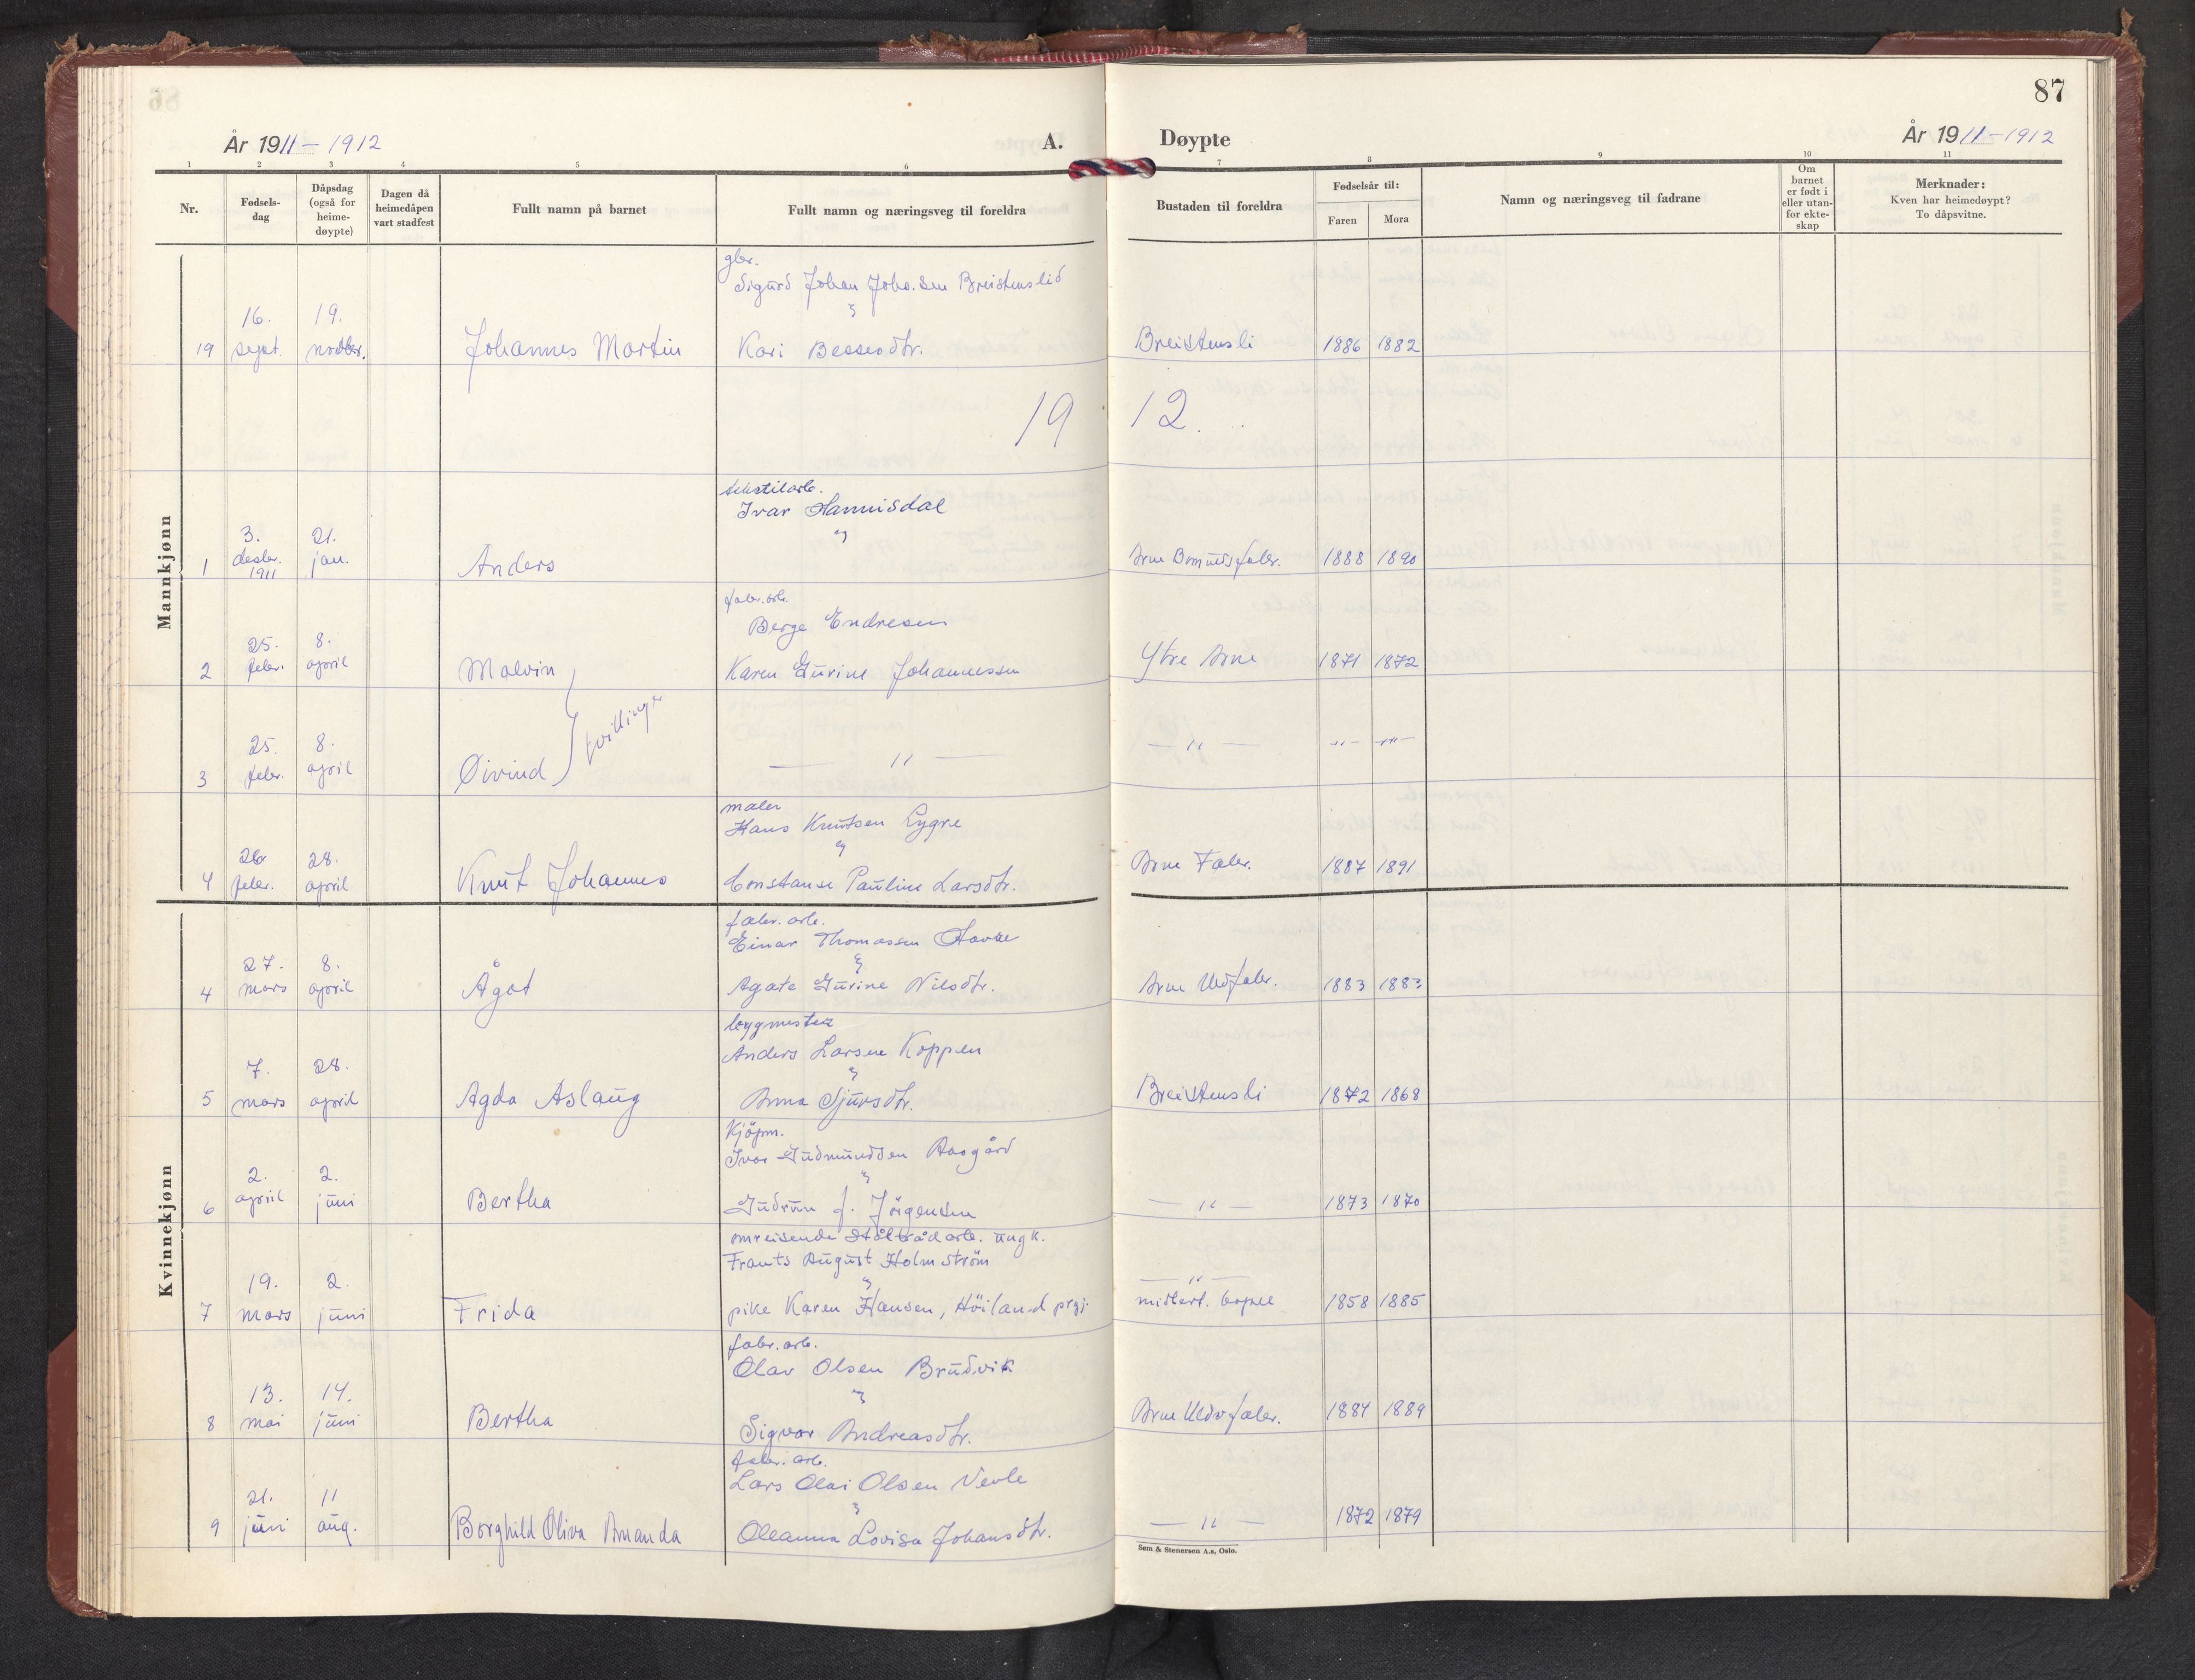 87
År 1911 – 1912
A.
Døypte
År 1911 – 1912
1 2 3 4 5 6 7 8 9 10 11
Nr.
Fødsels-
dag
Dåpsdag
(også for
heime-
døypte)
Dagen då
heimedåpen
vart stadfest
Fullt namn på barnet
Fullt namn og næringsveg til foreldra
Bustaden til foreldra
Fødselsår til:
Faren Mora
Namn og næringsveg til fadrane
Om
barnet
er født i
eller utan-
for ekte-
skap
Merknader:
Kven har heimedøypt?
To dåpsvitne.
Mannkjønn
gbr.
Sigurd Johan Johs.sen Breistenslid
16. 19.
19 sept. Johannes Martin Kari Bessesdtr. Breistensli 1886 1882
19 12.
tekstilarb.
Ivar Hannisdal
3. 21.
1 desbr. jan. Anders Arne 1888 1890
1911
fabr.arb.
Berge Endresen
25. 8.
2 febr. april Malvin Karen Gurine Johannessen Ytre Arne 1871 1872
tvillinger
25. 8.
3 febr. april Øivind — " — — " — — " — — " —
maler
Hans Knutsen Lygre
26 28.
4 febr. april Knut Johannes Constanse Pauline Larsdtr. Arne Fabr. 1887 1891
Kvinnekjønn
fabr. arb.
Einar Thomassen
27. 8.
4 mars april Ågot Agate Gurine Nilsdtr. Arne Uldfabr. 1883 1883
bygmester
Anders Larsen Koppen
7. 28.
5 mars april Agda Aslaug Anna Sjursdtr. Breistensli 1872 1868
Kjöpm.
Ivar Gudmundsen Aasgård
2. 2.
6 april juni Bertha Gudrun J. Jörgensen — " — 1873 1870
omreisende Ståltrådarb. ungk.
Frants August Holmström
19. 2. — " —
7 mars juni Frida pike Karen Hansen, Höiland prgj. midlert. 1858 1885
fabr. arb.
Olav Olsen Brudvik
13. 14.
8 mai juni Bertha Sigvor Andreasdtr. Arne Uldvfabr. 1884 1889
fabr. arb.
Lars Olai Olsen Nevle
21. 11
9 juni aug. Borghild Oliva Amanda Oleanna Lovisa Johansdtr. — " — 1872 1879
Sem & Stenersen A.s, Oslo.